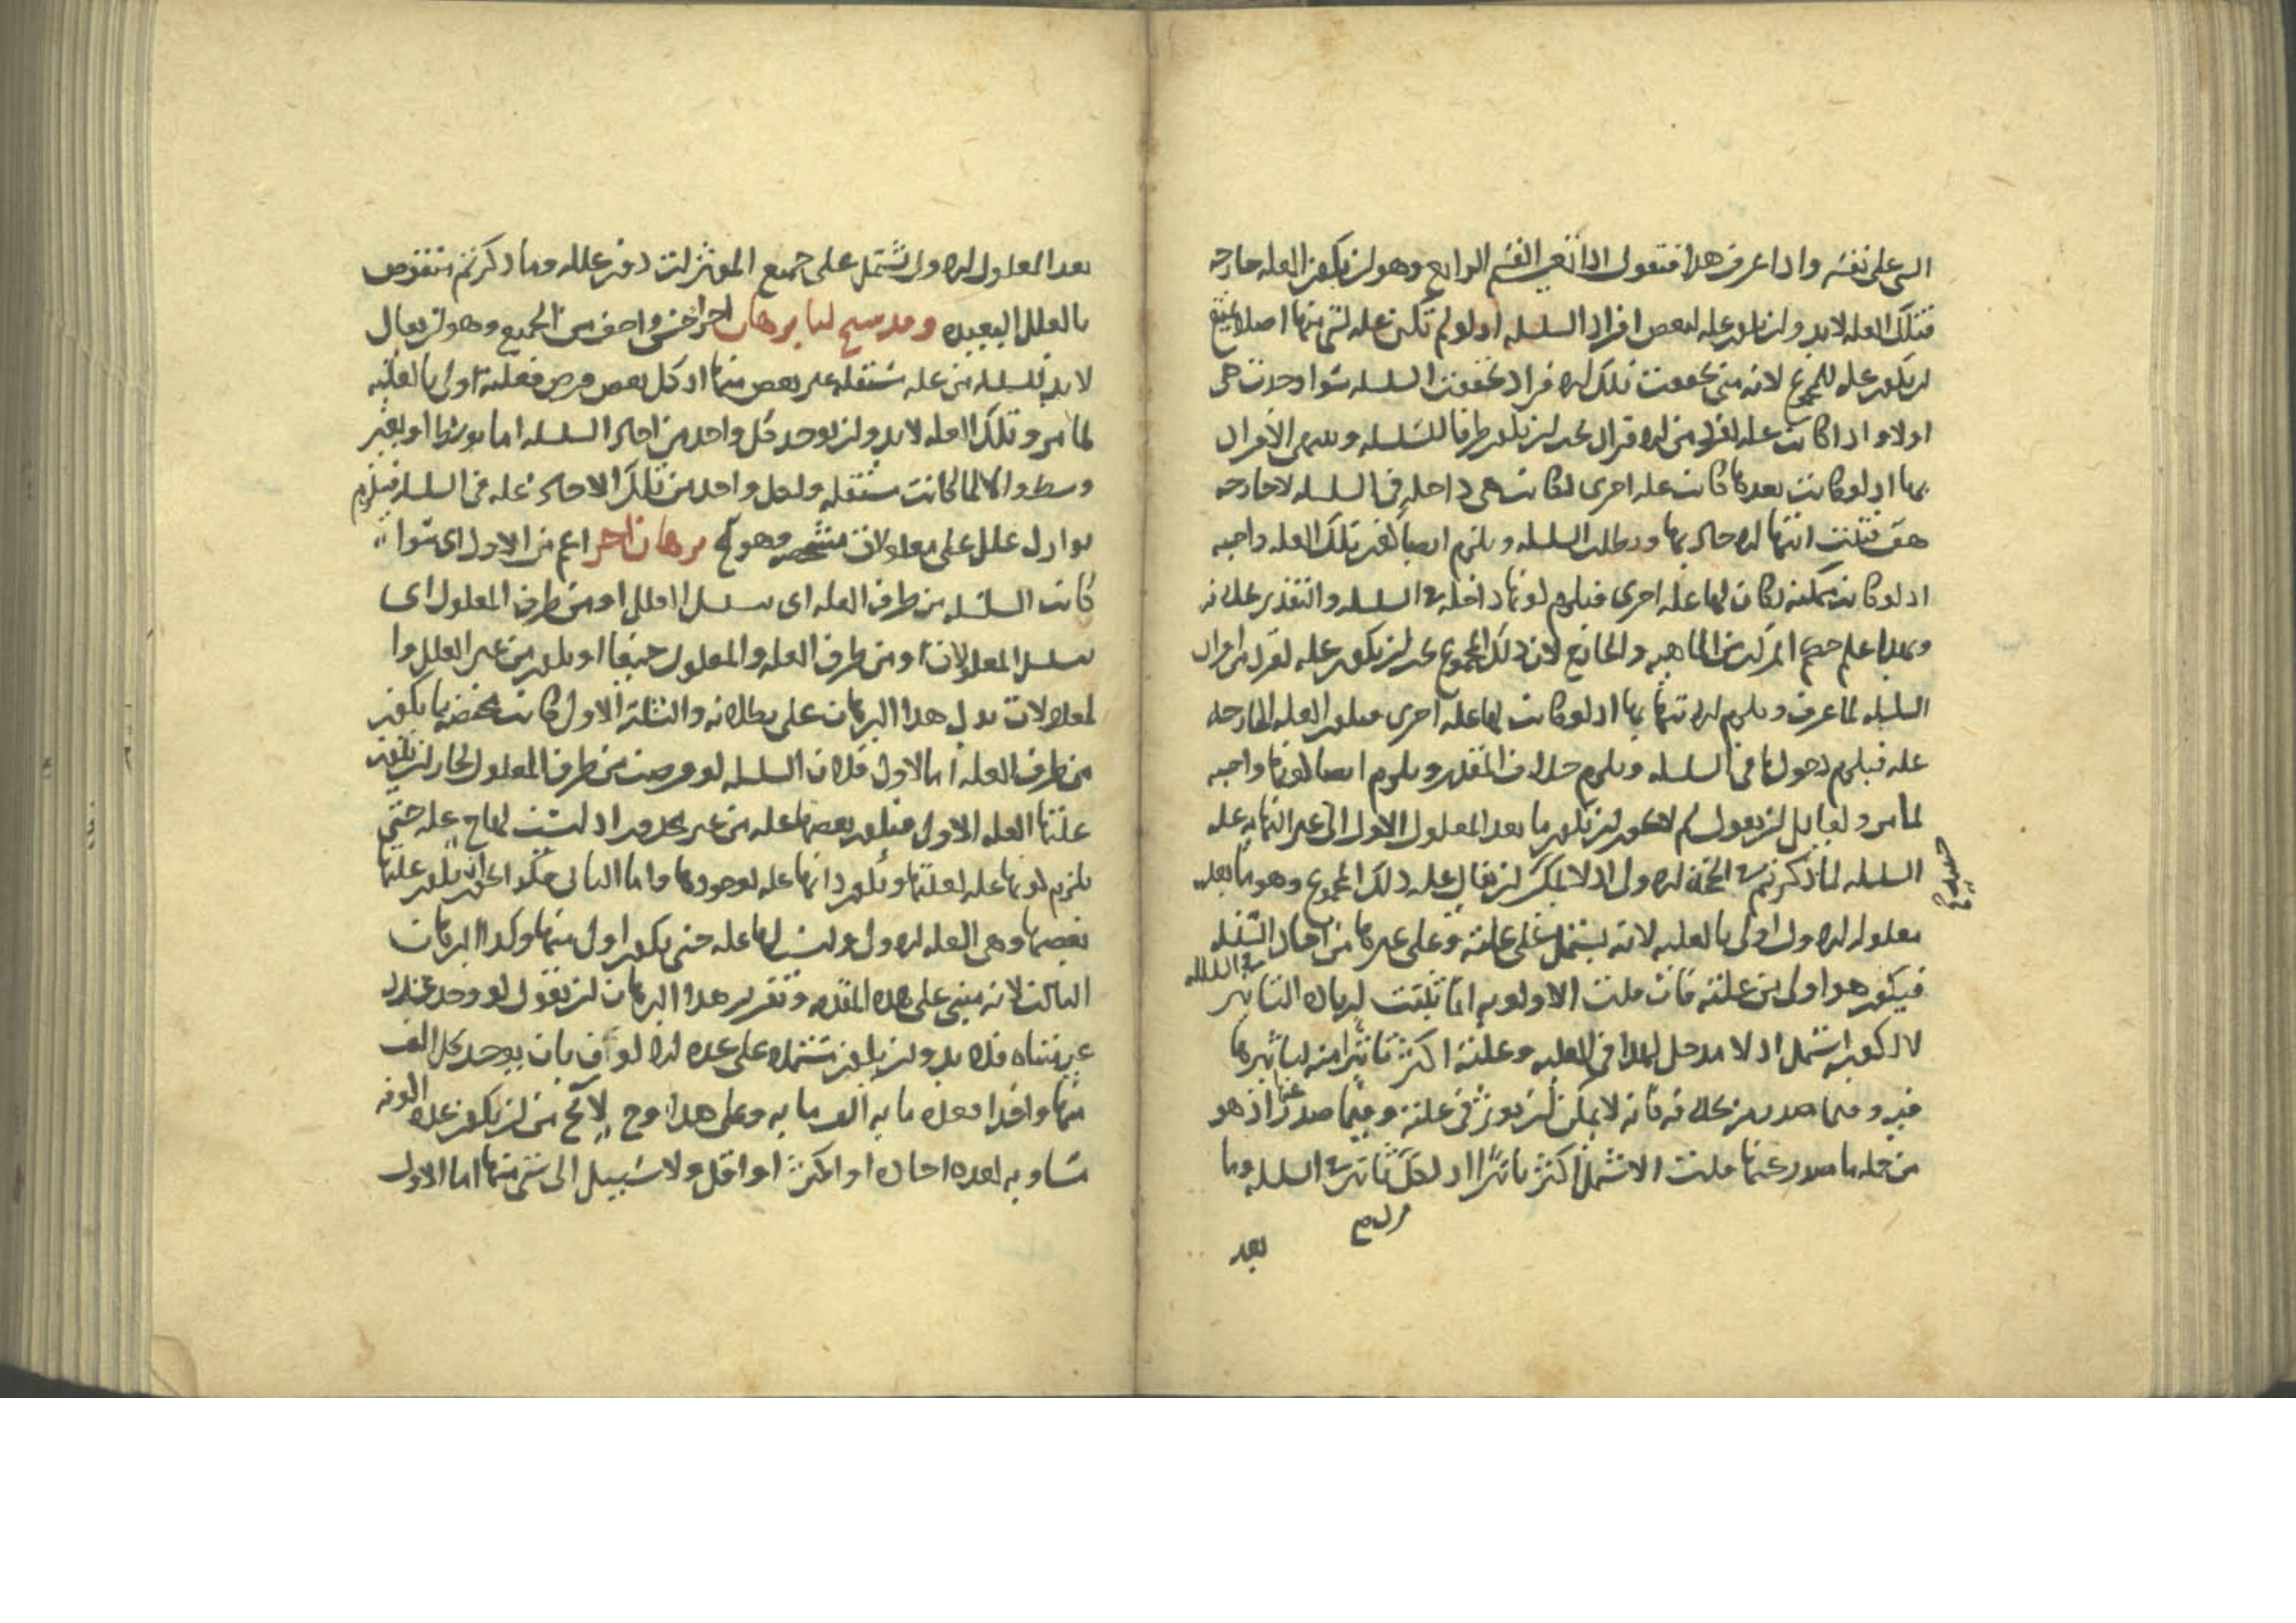 الشي على نفسه واذا عرفت هذا فنقول اذا تعين القسم الرابع وهو ان يكون العله خارجه
فتلك العله لابد وان يكون عله لبعض افراد السلسله اذ لو لم تكن عله لشي منها اصلا
ان يكون عله للمجموع لانه متى تحققت تلك الافراد تحققت السلسله سوا وجدت هي
اولا واذا كانت عله لفرد من الافراد يجب ان يكون طرفا للسلسله وينتهى الافراد
بها اذ لو كانت بعدها كانت عله اخرى لكانت هي داخله في السلسله لا خارجه
هف فتثبت انتها الاحاد بها وبطلت السلسله ويلزم ايضا كون تلك العله واجبه
اذ لو كانت ممكنه لكان لها عله اخرى فيلزم كونها داخله في السلسله والتقدير خلافه
السلسله لما عرف ويلزم انتها بها اذ لو كانت لها عله اخرى فيكون العله الخارجه
عله فيلزم دخولها في السلسله ويلزم خلاف المقدر ويلزم ايضا كونها واجبه
لما مر ولقايل ان يقول لم لا يجوز ان يكون ما بعد المعلول الاول الى غير النهايه عله
السلسله لما ذكرتم في الاول اذ لا يمكن ان يقال عله ذلك المجموع وهو ما بعد
معلوله الاول اولى بالعليه لانه يشتمل على علته وعلى غيرها من احاد السلسله
فيكون هو اولى من علته فان قلت الاولويه انما تثبت لزياده التاثير في السلسله
لا لكونه اشمل اذ لا مدخل لهذا في العليه وعلته اكثر تاثيرا منه لتاثيرها
فيه وفيما صدر عنه فانه لا يمكن ان يوثر في علته وفيما صدر عنها اذ هو
من جمله ما صدر عنها قلت الاشمل اكثر تاثيرا اذ لكل تاثير في السلسله وما
بعد
بعد المعلول الاول يشتمل على جميع الموثرات دون علله وما ذكرتم منقوض
بالعلل البعيده وقد سنح لنا برهان اخر اخف من الجميع وهو ان يقال
لابد للسلسله من عله مستقله غير بعض منها اذ كل بعض فرض فعلته اولى بالعليه
لما مر وتلك العله لابد وان يوجد كل واحد من احاد السلسله اما بوسط او بغير
وسط والا لما كانت مستقله ولكل واحد من تلك الاحاد عله في السلسله فيلزم
توارد علل على معلولات متشخصه وهو مح برهان اخر اعم من الاول اي سوا
كانت السلسله من طرف العله اي سلسل العلل او من طرف المعلول اي
سلسل المعلولات او من طرف العله والمعلول جميعا او يكون من غير العلل وا
لمعلولات يدل هذا البرهان على بطلانه والثلثه الاول كانت مختصه بما يكون
من طرف العله اما الاول فلان السلسله لو فرضت من طرف المعلول لجاز ان يكون
علتها العله الاولى فيكون بعضها عله من غير محذور اذ ليست لها ح عله حتى
يلزم كونها عله لعلتها ويكون ذاتها عله لوجودها واما الثاني فكذا لجواز ان يكون علتها
بعضها وهي العله الاولى وليست لها عله حتى يكون اولى منها وكذا البرهان
الثالث لانه مبني على هذه المقدمه وتقرير هذا البرهان ان نقول لو وجد عدد
غير متناه فلا بد وان يكون مشتمله على عده الالوف بان يوجد كل الف
منها واحدا فعده مايه الف مايه وعلى هذا وح لا يخ من ان يكون عده الوفه
مساويه لعده احاده او اكثر او اقل ولا سبيل الى شي منها اما الاول